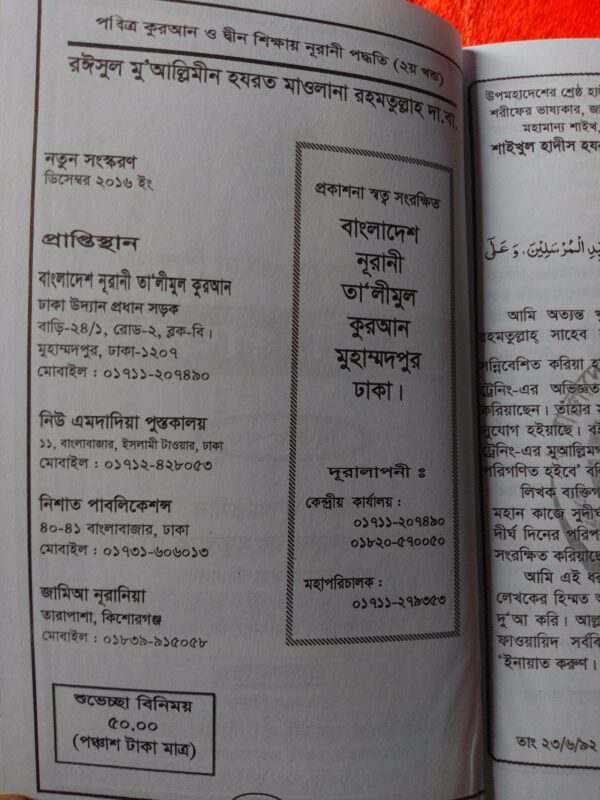 পবিত্র কুরআন ও দ্বীন শিক্ষায় নূরানী পদ্ধতি (২য় খন্ড)
রঈসুল মু'আল্লিমীন হযরত মাওলানা রহমতুল্লাহ দা.বা.
নতুন সংস্করণ
ডিসেম্বর ২০১৬ ইং
প্রাপ্তিস্থান
বাংলাদেশ নূরানী তা'লীমুল কুরআন
ঢাকা উদ্যান প্রধান সড়ক
বাড়ি-২৪/১, রোড-২, ব্লক-বি।
মুহাম্মদপুর, ঢাকা-১২০৭
মোবাইল : ০১৭১১-২০৭৪৯০
নিউ এমদাদিয়া পুস্তকালয়
১১, বাংলাবাজার, ইসলামী টাওয়ার, ঢাকা
মোবাইল : ০১৯১২-৪২৮০৫৩
নিশাত পাবলিকেশন্স
৪০-৪১ বাংলাবাজার, ঢাকা
মোবাইল : ০১৭৩১-৬০৬০১৩
জামিআ নূরানিয়া
তারাপাশা, কিশোরগঞ্জ
মোবাইল : ০১৮৩৯-৯১৫০৫৮
শুভেচ্ছা বিনিময়
৫০.০০
(পঞ্চাশ টাকা মাত্র)
প্রকাশনা স্বত্ব সংরক্ষিত
বাংলাদেশ
নূরানী
তা'লীমুল
কুরআন
মুহাম্মদপুর
ঢাকা।
দূরালাপনী :
কেন্দ্রীয় কার্যালয় :
০১৭১১-২০৭৪৯০
০১৮২০-৫৭০০৫০
মহাপরিচালক :
০১৭১১-২৭৯৩৫৩
উপমহাদেশের শ্রেষ্ঠ
শরীফের ভাষ্যকার,
মহামান্য শাইখ,
শাইখুল হাদীস
الْمُرْسَلِيْنَ، وَعَلٰى
আমি অত্যন্ত
রহমতুল্লাহ্ সাহেব
সন্নিবেশিত করিয়া
ট্রেনিং-এর অভিজ্ঞত
করিয়াছেন। তাঁহার
সুযোগ হইয়াছে।
ট্রেনিং-এর মুআল্লিম
পরিগণিত হইবে'
লিখক ব্যক্তিগ
মহান কাজে সুদীর্ঘ
দীর্ঘ দিনের
সংরক্ষিত করিয়াছে
আমি এই
লেখকের হিম্মত
দু'আ করি।
ফাওয়ায়িদ
'ইনায়াত করুণ।
তাং ২৩/৬/৯২